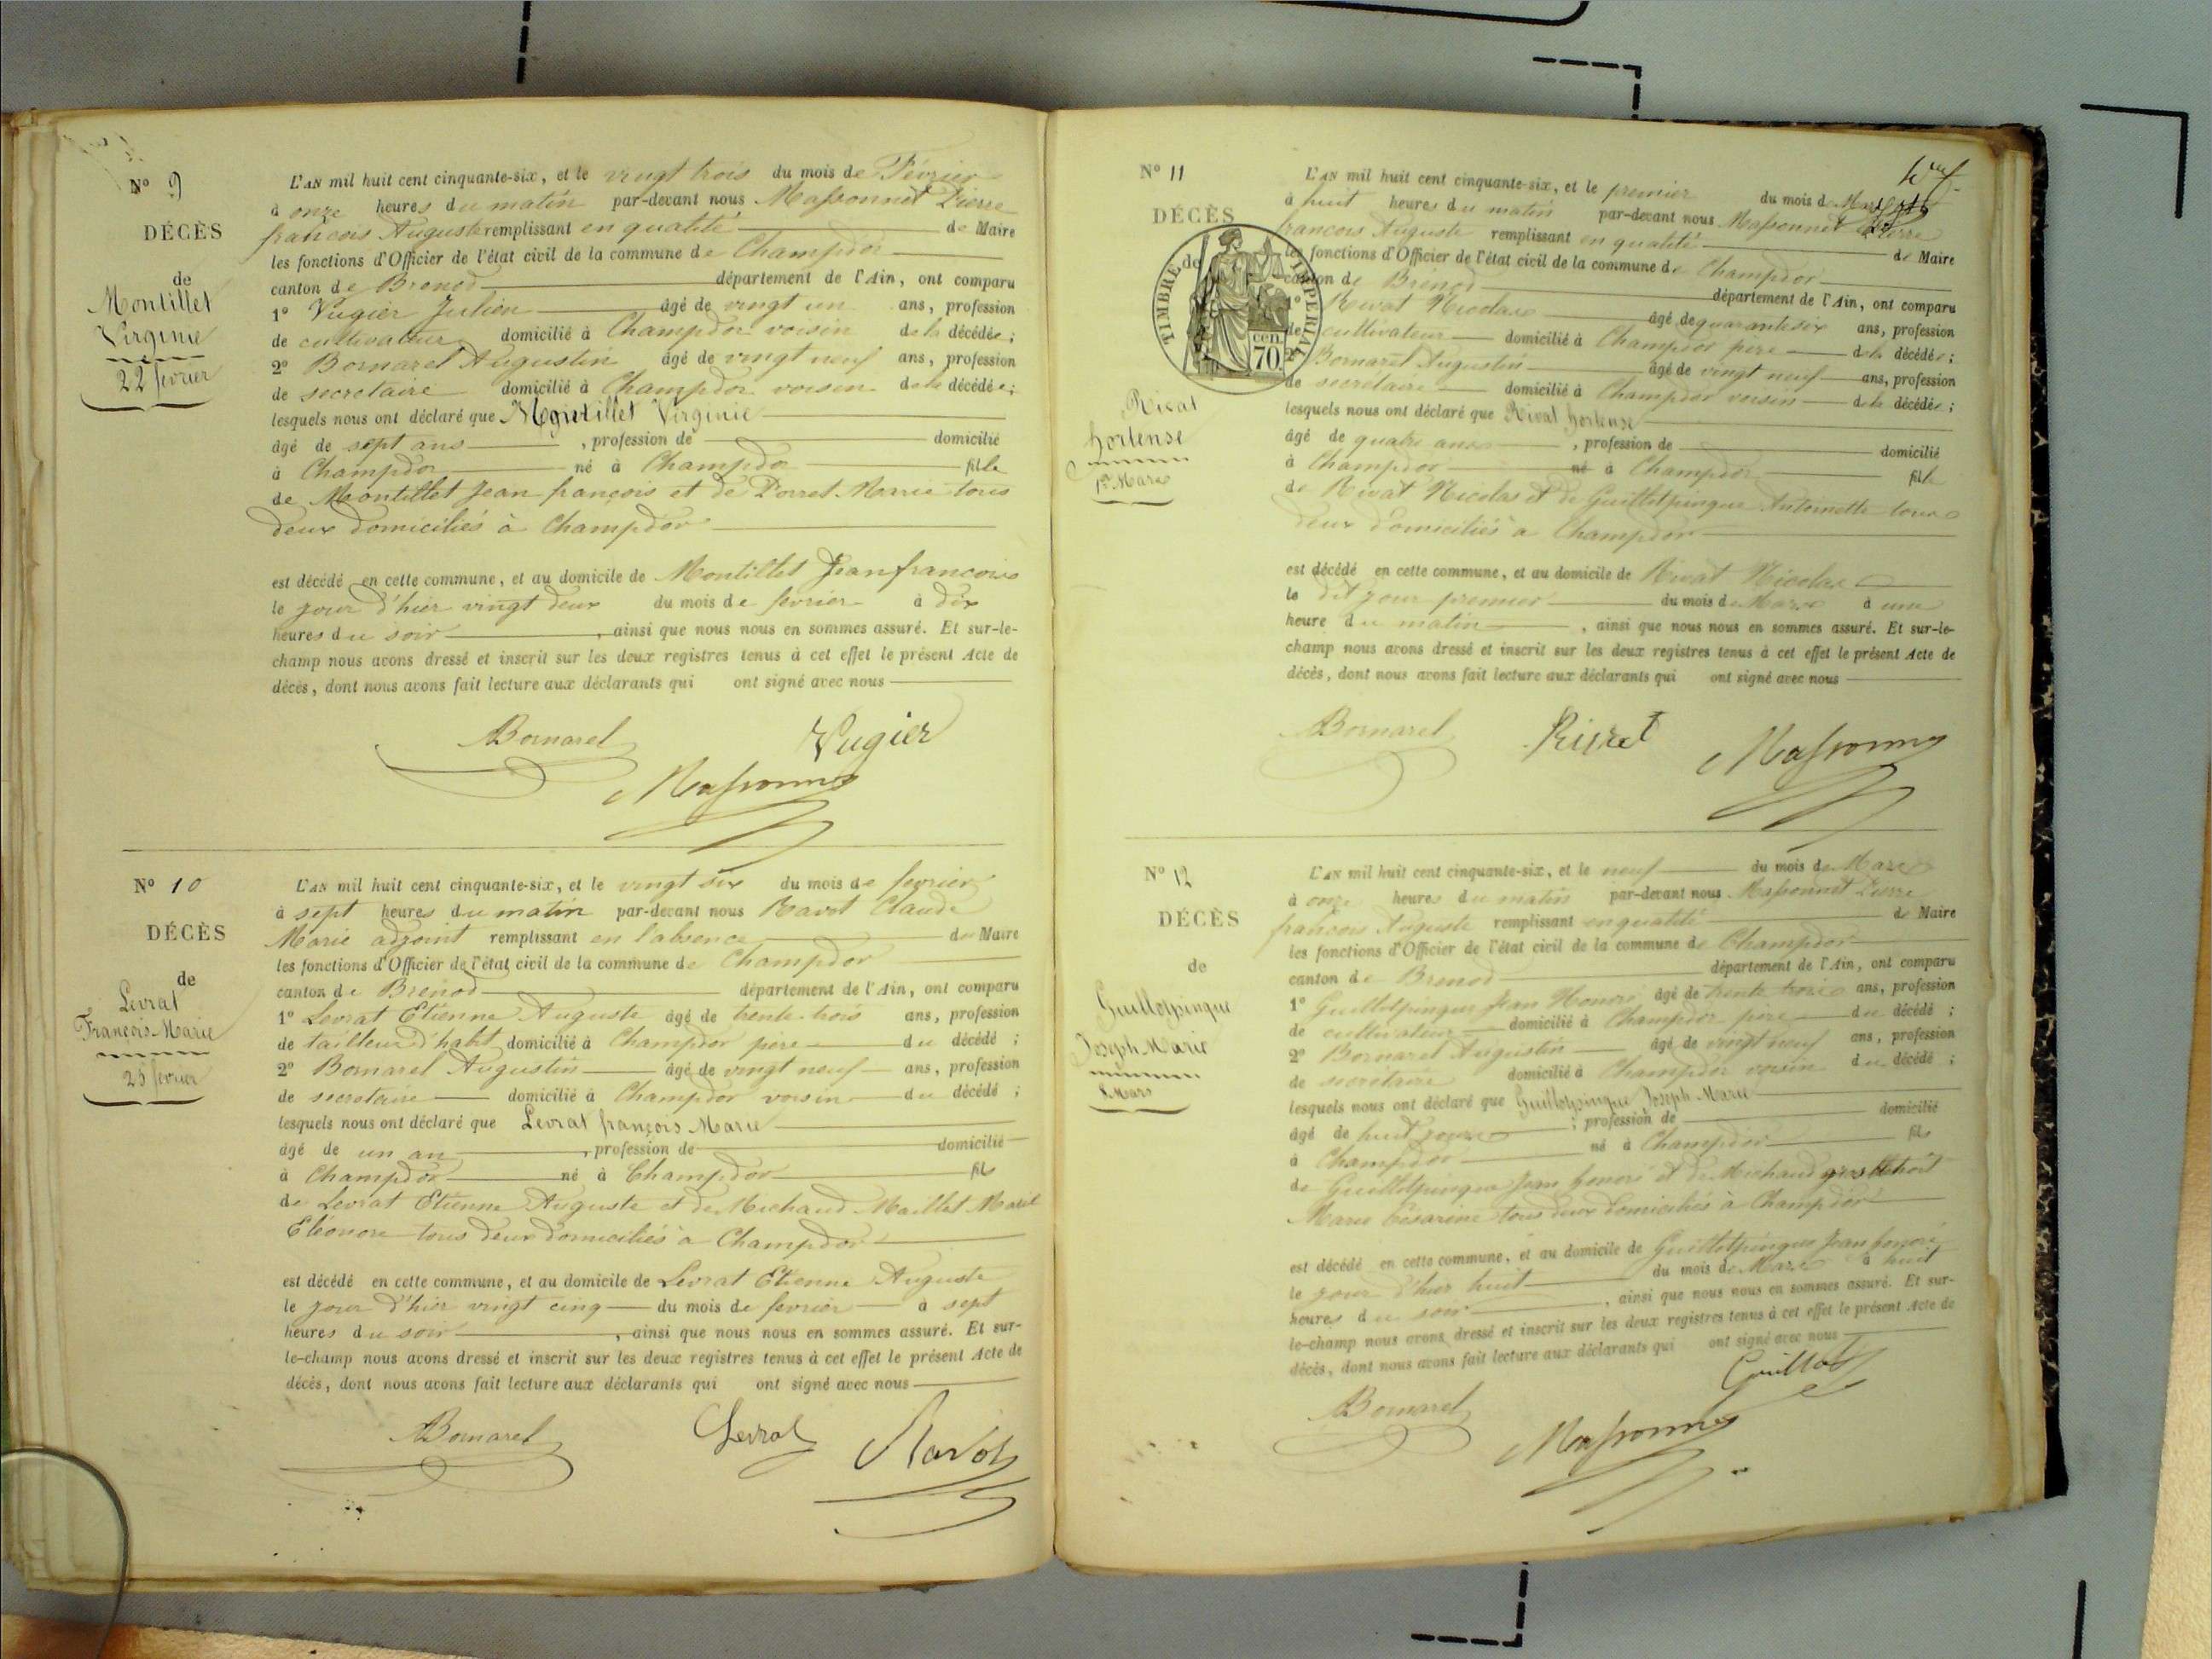 N° 9
DÉCÈS
de
Montillet
Virginie
22 fevrier
L'AN mil huit cent cinquante-six, et le vingt trois du mois de Février
à onze heures du matin par-devant nous Massonnet Pierre
francois Auguste remplissant en qualité de Maire
les fonctions d'Officier de l'état civil de la commune de Champdor
canton de Brenod département de l'Ain, ont comparu
1° Vugier Julien âgé de vingt un ans, profession
de cultivateur domicilié à Champdor voisin de la décédée ;
2° Bornarel Augustin âgé de vingt neuf ans, profession
de secretaire domicilié à Champdor voisin de la décédée ;
lesquels nous ont déclaré que Montillet Virginie
âgé de sept ans , profession de domicilié
à Champdor né à Champdor fille
de Montillet Jean françois et de Porret Marie tous
deux domiciliés à Champdor
est décédé en cette commune, et au domicile de Montillet Jean francois
le jour d'hier vingt deux du mois de fevrier à dix
heures du soir , ainsi que nous nous en sommes assuré. Et sur-le-
champ nous avons dressé et inscrit sur les deux registres tenus à cet effet le présent Acte de
décès, dont nous avons fait lecture aux déclarants qui ont signé avec nous
Bornarel Vugier
Massonnet
N° 10
DÉCÈS
de
Levrat
François-Marie
25 fevrier
L'AN mil huit cent cinquante-six, et le vingt six du mois de fevrier
à sept heures du matin par-devant nous Ravot Claude
Marie adjoint remplissant en l'absence du Maire
les fonctions d'Officier de l'état civil de la commune de Champdor
canton de Brenod département de l'Ain, ont comparu
1° Levrat Etienne Auguste âgé de trente trois ans, profession
de tailleur d'habt domicilié à Champdor père du décédé ;
2° Bornarel Augustin âgé de vingt neuf ans, profession
de secretaire domicilié à Champdor voisin du décédé ;
lesquels nous ont déclaré que Levrat françois Marie
âgé de un an , profession de domicilié
à Champdor né à Champdor fils
de Levrat Etienne Auguste et de Michaud Maillet Marie
Eléonore tous deux domiciliés à Champdor
est décédé en cette commune, et au domicile de Levrat Etienne Auguste
le jour d'hier vingt cinq du mois de fevrier à sept
heures du soir , ainsi que nous nous en sommes assuré. Et sur-
le-champ nous avons dressé et inscrit sur les deux registres tenus à cet effet le présent Acte de
décès, dont nous avons fait lecture aux déclarants qui ont signé avec nous
Bornarel Levrat Ravot
N° 11
DÉCÈS
de
TIMBRE IMPERIAL
cen
70
Rivat
hortense
1er Mars
L'AN mil huit cent cinquante-six, et le premier du mois de Mars
à huit heures du matin par-devant nous Massonnet Pierre
francois Auguste remplissant en qualité de Maire
les fonctions d'Officier de l'état civil de la commune de Champdor
canton de Brénod département de l'Ain, ont comparu
1° Rivat Nicolas âgé de quarante six ans, profession
de cultivateur domicilié à Champdor père de la décédée ;
2° Bornarel Augustin âgé de vingt neuf ans, profession
de secretaire domicilié à Champdor voisin de la décédée ;
lesquels nous ont déclaré que Rivat hortense
âgé de quatre ans , profession de domicilié
à Champdor né à Champdor fille
de Rivat Nicolas et de Guillotpinque Antoinette tous
deux domiciliés à Champdor
est décédé en cette commune, et au domicile de Rivat Nicolas
le dit jour premier du mois de Mars à une
heure du matin , ainsi que nous nous en sommes assuré. Et sur-le-
champ nous avons dressé et inscrit sur les deux registres tenus à cet effet le présent Acte de
décès, dont nous avons fait lecture aux déclarants qui ont signé avec nous
Bornarel Rivat Massonnet
N° 12
DÉCÈS
de
Guillotpinque
Joseph Marie
8 Mars
L'AN mil huit cent cinquante-six, et le neuf du mois de Mars
à onze heures du matin par-devant nous Massonnet Pierre
francois Auguste remplissant en qualité de Maire
les fonctions d'Officier de l'état civil de la commune de Champdor
canton de Brenod département de l'Ain, ont comparu
1° Guillotpinque Jean Honoré âgé de trente trois ans, profession
de cultivateur domicilié à Champdor père du décédé ;
2° Bornarel Augustin âgé de vingt neuf ans, profession
de secrétaire domicilié à Champdor voisin du décédé ;
lesquels nous ont déclaré que Guillotpinque Joseph Marie
âgé de huit jours , profession de domicilié
à Champdor né à Champdor fils
de Guillotpinque Jean honoré et de Michaud
Marie Césarine tous deux domiciliés à Champdor
est décédé en cette commune, et au domicile de Guillotpinque Jean honoré
le jour d'hier huit du mois de Mars à huit
heures du soir , ainsi que nous nous en sommes assuré. Et sur-
le-champ nous avons dressé et inscrit sur les deux registres tenus à cet effet le présent Acte de
décès, dont nous avons fait lecture aux déclarants qui ont signé avec nous
Guillot
Bornarel
Massonnet